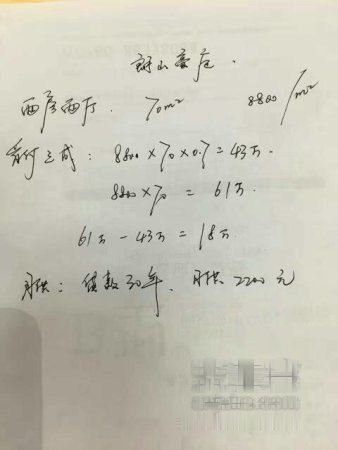 山豪庭.
两房两厅. 70m² 8800/m²
首付三成: 8800×70×0.7=43万.
8800×70 = 61万.
61万-43万=18万.
月供: 贷款30年. 月供2200元